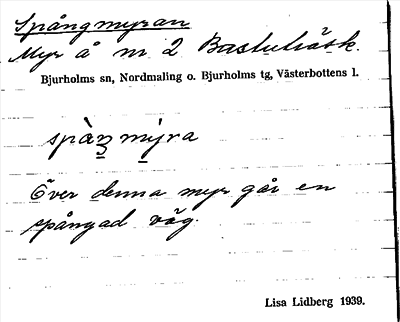 Spångmyran
Myr å nr 2 Bastuträsk.
Bjurholms sn, Nordmaling o. Bjurholms tg, Västerbottens l.
spàŋ mýra
Över denna myr går en
spångad väg.
Lisa Lidberg 1939.